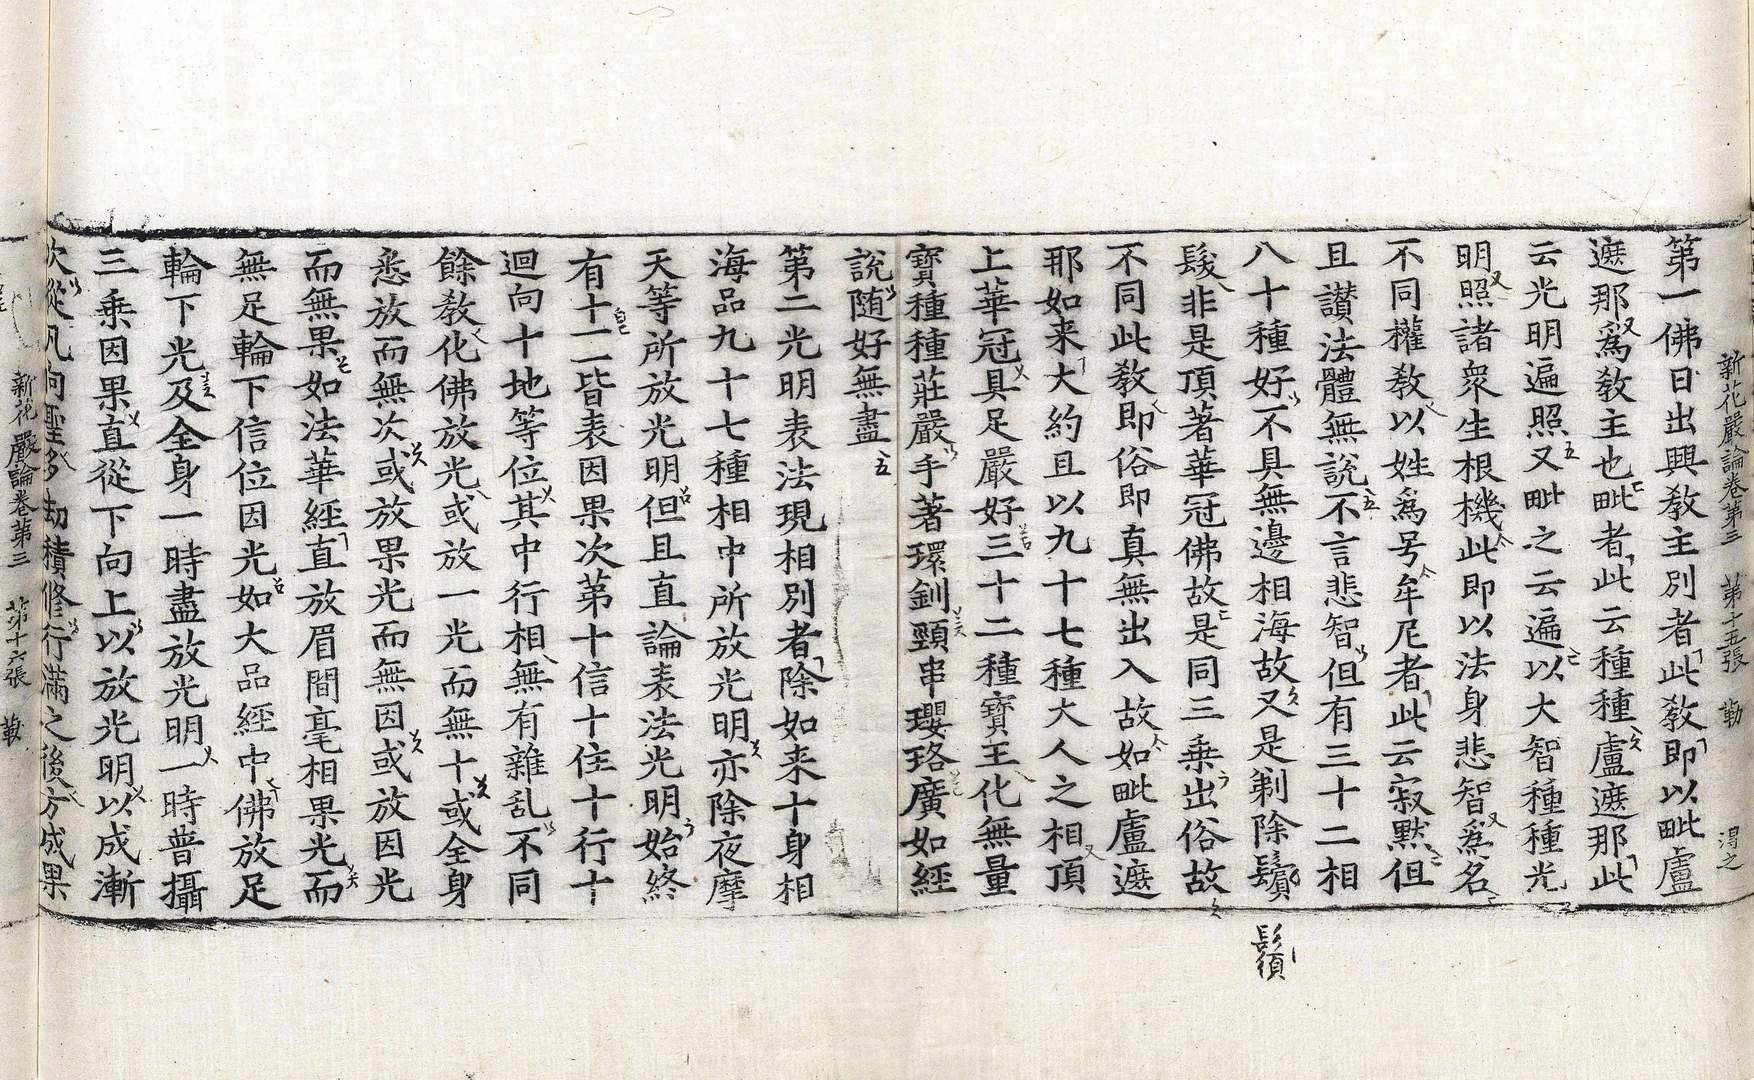 新花嚴論卷第三 第十五張 勤 淂之
第一佛日出興敎主別者此敎即以毗盧
遮那爲敎主也毗者此云種種盧遮那此
云光明遍照又毗之云遍以大智種種光
明照諸衆生根機此即以法身悲智爲名
不同權敎以姓爲号牟尼者此云寂默但
且讃法體無說不言悲智但有三十二相
八十種好不具無邊相海故又是剃除鬚
髮非是頂著華冠佛故是同三乗出俗故
不同此敎即俗即真無出入故如毗盧遮
那如来大約且以九十七種大人之相頂
上華冠具足嚴好三十二種寶王化無量
寶種種莊嚴手著環釧頸串瓔珞廣如經
說随好無盡
第二光明表法現相別者除如来十身相
海品九十七種相中所放光明亦除夜摩
天等所放光明但且直論表法光明始終
有十一皆表因果次第十信十住十行十
迴向十地等位其中行相無有雜乱不同
餘敎化佛放光或放一光而無十或全身
悉放而無次或放果光而無因或放因光
而無果如法華經直放眉間毫相果光而
無足輪下信位因光如大品經中佛放足
輪下光及全身一時盡放光明一時普攝
三乗因果直從下向上以放光明以成漸
次從凡向聖多劫積修行滿之後方成果
新花嚴論卷第三 第十六張 勤
鬚